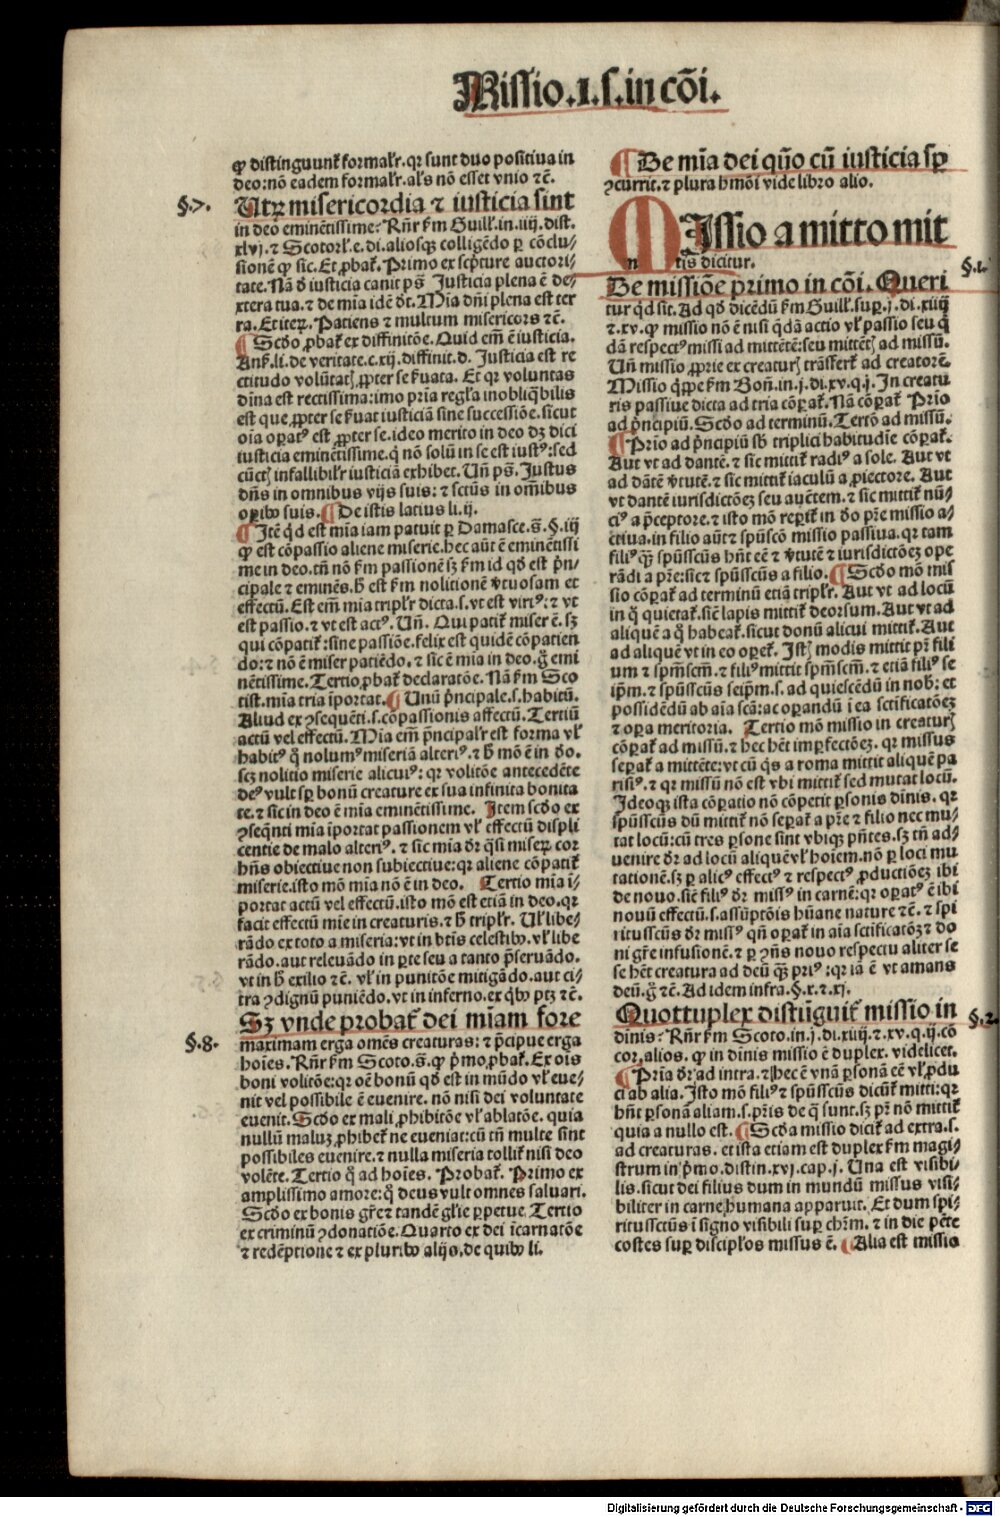 Missio.1.ſ.in cõi.
ꝙ diſtinguunt᷒ formalr̄.qr ſunt duo poſitiua in
deo:nõ eadem formalr̄.al's nõ eſſet vnio ⁊c̄.
§.7.
Vtrꝫ miſericordia ⁊ iuſticia ſint
in deo eminẽtiſſime: Rñr ẜm Guill.in.iiij.diſt.
xlvj.⁊ Scotorl̄.e.di.alioſqꝫ colligẽdo ꝑ cõclu/
ſionẽ ꝙ ſic.Et ꝓbat᷒.Primo ex ſcp̃ture auctori/
tate.Nã ð iuſticia canit pꝰ Juſticia plena ẽ de/
xtera tua.⁊ de mĩa idẽ ðt.Mĩa dñi plena eſt ter
ra.Et iteꝝ.Patiens ⁊ multum miſericors ⁊c̄.
¶ Scðo ꝓbat᷒ ex diffinitõe.Quid em̃ ẽ iuſticia.
Anẜ.li.de veritate.c.xij.diffinit.ð. Juſticia eſt re
ctitudo volũtat᷒ ꝓpter ſe ẜuata. Et qr voluntas
dĩna eſt rectiſſima:imo pria regl'a inobliꝗbilis
eſt que ꝓpter ſe ẜuat iuſticiã ſine ſucceſſiõe.ſicut
oĩa operatꝰ eſt ꝓpter ſe.ideo merito in deo dꝫ dici
iuſticia eminẽtiſſime.ꝗ nõ ſolũ in ſe eſt iuſtꝰ:ſed
cũct᷒ infallibilr̄ iuſticiã exhibet. Uñ pꝰ. Juſtus
dñs in omnibus vijs ſuis: ⁊ ſctũs in om̃ibus
oꝑibꝰ ſuis.¶ De iſtis latius li.ij.
¶ Itẽ ꝗd eſt mĩa iam patuit ꝑ Damaſce.s̃.§.iij
ꝙ eſt cõpaſſio aliene miſerie.hec aũt ẽ eminẽtiſſi
me in deo.tñ nõ ẜm paſſionẽ ſꝫ ẜm id qð eſt p̃n/
cipale ⁊ eminẽs.h̃ eſt ẜm nolitionẽ v̓tuoſam et
effectũ. Eſt em̃ mĩa triplr̄ dicta.ſ.vt eſt virtꝰ: ⁊ vt
eſt paſſio.⁊ vt eſt actꝰ. Uñ. Qui patit᷒ miſer ẽ.ſꝫ
qui cõpatit᷒:ſine paſſiõe.felix eſt quidẽ cõpatien
do:⁊ nõ ẽ miſer patiẽdo. ⁊ ſic ẽ mĩa in deo.g̃ emi
nẽtiſſime.Tertio ꝓbat᷒ declaratõe. Nã ẜm Sco
tiſt.mĩa tria ĩportat.¶ Unũ p̃ncipale.ſ.habitũ.
Aliud ex ↄſequẽti.ſ.cõpaſſionis affectũ.Tertiũ
actũ vel effectũ. Mĩa em̃ p̃ncipalr̄ eſt forma vl'
habitꝰ ꝗ nolumꝰ miſeriã alteriꝰ.⁊ h̃ mõ ẽ in ðo.
ſcꝫ nolitio miſerie alicuiꝰ: qr volitõe antecedẽte
deꝰ vult ꝑ bonũ creature ex ſua infinita bonita
te.⁊ ſic in deo ẽ mĩa eminẽtiſſime. Item ſcðo ex
ↄſeqñti mĩa ĩportat paſſionem vl' effectũ diſpli
centie de malo alteriꝰ.⁊ ſic mĩa ðr qſi miſeꝝ cor
hñs obiectiue non ſubiectiue:qr aliene cõpatit᷒
miſerie.iſto mõ mĩa nõ ẽ in deo. Tertio mĩa ĩ/
portat actũ vel effectũ.iſto mõ eſt etiã in deo.qr
facit effectũ mĩe in creaturis.⁊ h̃ triplr̄. Ul' libe/
rãdo ex toto a miſeria:vt in btĩs celeſtibꝰ.vl' libe
rãdo.aut releuãdo in ꝑte ſeu a tanto p̃ſeruãdo.
vt in h̃ exilio ⁊c̄. vl' in punitõe mitigãdo.aut ci/
tra ↄdignũ puniẽdo.vt in inferno.ex ꝗbꝰ ptꝫ ⁊c̄.
Sꝫ vnde probat᷒ dei mĩam fore
§.8.
maximam erga omẽs creaturas: ⁊ p̃cipue erga
hoĩes. Rñr ẜm Scoto.s̃. ꝙ p̃mo ꝓbat᷒. Ex oĩs
boni volitõe:qr oẽ bonũ qð eſt in mũdo vl' eue/
nit vel poſſibile ẽ euenire.nõ niſi dei voluntate
euenit.Scðo ex mali ꝓhibitõe vl' ablatõe. quia
nullũ maluꝫ ꝓhibet᷒ ne eueniat:cũ tñ multe ſint
poſſibiles euenire.⁊ nulla miſeria tollit᷒ niſi deo
volẽte. Tertio ꝗ ad hoĩes. Probat᷒. Primo ex
ampliſſimo amore:ꝗ deus vult omnes ſaluari.
Scðo ex bonis gr̃e ⁊ tandẽ gl'ie ꝑpetue. Tertio
ex criminũ ↄdonatiõe.Quarto ex dei ĩcarnatõe
⁊ redẽptione ⁊ ex pluribꝰ alijs.de quibꝰ li.
¶ De mĩa dei quõ cũ iuſticia ſꝑ
ↄcurrit.⁊ plura hmõi vide libro alio.
MIſſio a mitto mit
tis dicitur.
De miſſiõe primo in cõi. Queri
§.1.
tur ꝗd ſit. Ad qð dicẽdũ ẜm Guill.ſuꝑ.j.di.xiiij
⁊.xv.ꝙ miſſio nõ ẽ niſi ꝗdã actio vl' paſſio ſeu ꝗ
dã reſpectꝰ miſſi ad mittẽtẽ:ſeu mittẽt᷒ ad miſſũ.
Uñ miſſio ꝓprie ex creatur᷒ trãſfert᷒ ad creatorẽ.
Miſſio ꝗppe ẜm Boñ.in.j.di.xv.q.j. In creatu
ris paſſiue dicta ad tria cõꝑat᷒. Nã cõꝑat᷒ Prĩo
ad p̃ncipiũ. Scðo ad terminũ.Tertõ ad miſſũ.
¶ Prĩo ad p̃ncipiũ ſb̃ triplici habitudĩe cõꝑat᷒.
Aut vt ad dantẽ.⁊ ſic mittit᷒ radiꝰ a ſole. Aut vt
ad dãtẽ v̓tutẽ.⁊ ſic mittit᷒ iaculũ a ꝓiectore. Aut
vt dantẽ iurisdictõeꝫ ſeu auc̃tem.⁊ ſic mittit᷒ nũ/
ciꝰ a p̃ceptore.⁊ iſto mõ reꝑit᷒ in ðo pr̃e miſſio a/
ctiua.in filio aũt ⁊ ſpũſcõ miſſio paſſiua.qr tam
filiꝰ qꝫ ſpũſſcũs hñt eẽ ⁊ v̓tutẽ ⁊ iurisdictõeꝫ ope
rãdi a pr̃e:ſic ⁊ ſpũſſcũs a filio.¶ Scðo mõ miſ
ſio cõꝑat᷒ ad terminũ etiã triplr̄. Aut vt ad locũ
in ꝗ quietat᷒.ſiẽ lapis mittit᷒ deorſum. Aut vt ad
aliquẽ a ꝗ habeat᷒.ſicut donũ alicui mittit᷒. Aut
ad aliquẽ vt in eo oꝑet᷒. Iſt᷒ modis mittit pr̃ fili
um ⁊ ſpm̃ſcm̃.⁊ filiꝰ mittit ſpm̃ſcm̃.⁊ etiã filiꝰ ſe
ip̃m.⁊ ſpũſſcũs ſeip̃m.ſ.ad quieſcẽdũ in nob᷒: et
poſſidẽdũ ab aĩa ſcã:ac oꝑandũ ĩ ea ſctificatõeꝫ
⁊ oꝑa meritoria. Tertio mõ miſſio in creatur᷒
cõꝑat᷒ ad miſſũ.⁊ hec hẽt imꝑfectõeꝫ. qr miſſus
ſeꝑat᷒ a mittẽte:vt cũ ꝗs a roma mittit aliquẽ pa
riſiꝰ.⁊ qr miſſũ nõ eſt vbi mittit᷒ ſed mutat locũ.
Ideoqꝫ iſta cõꝑatio nõ cõpetit ꝑſonis dĩnis. qr
ſpũſſcũs dũ mittit᷒ nõ ſeꝑat᷒ a pr̃e ⁊ filio nec mu/
tat locũ:cũ tres ꝑſone ſint vbiqꝫ p̃ñtes.ſꝫ tñ ad/
uenire ðr ad locũ aliquẽ vl' hoĩem.nõ ꝑ loci mu
tationẽ.ſꝫ ꝑ aliꝰ effectꝰ ⁊ reſpectꝰ ꝓductiõeꝫ ibi
de nouo.ſiẽ filiꝰ ðr miſſꝰ in carnẽ:qr oꝑatꝰ ẽ ibi
nouũ effectũ.ſ.aſſũptõis hũane nature ⁊c̄. ⁊ ſpi
rituſſcũs ðr miſſꝰ qñ oꝑat᷒ in aĩa ſctificatõeꝫ ⁊ do
ni gr̃e infuſionẽ.⁊ ꝑ ↄñs nouo reſpectu aliter ſe
ſe hẽt creatura ad deũ qꝫ priꝰ:qr iã ẽ vt amans
deũ.g̃ ⁊c̄.Ad idem infra.§.x.⁊.xj.
Quottuplex diſtĩguit᷒ miſſio in
§.2.
dĩnis: Rñr ẜm Scoto.in.j.di.xiiij.⁊.xv.q.ij.cõ
cor.alios.ꝙ in dĩnis miſſio ẽ duplex. videlicet.
¶ Prĩa ðr ad intra.⁊ hec ẽ vnã ꝑſonã eẽ vl' ꝓdu
ci ab alia. Iſto mõ filiꝰ ⁊ ſpũſſcũs dicũt᷒ mitti:qr
hñt ꝑſonã aliam.ſ.pr̃is de ꝗ ſunt.ſꝫ pr̃ nõ mittit᷒
quia a nullo eſt.¶ Scða miſſio dicit᷒ ad extra.ſ.
ad creaturas. et iſta etiam eſt duplex ẜm magi/
ſtrum in p̃mo.diſtin.xvj.cap.j. Una eſt viſibi/
lis.ſicut dei filius dum in mundũ miſſus viſi/
biliter in carne humana apparuit. Et dum ſpi/
rituſſctũs ĩ ſigno viſibili ſuꝑ chr̃m. ⁊ in die pẽte
coſtes ſuꝑ diſcipl'os miſſus ẽ.¶ Alia eſt miſſio
Digitalisierung gefördert durch die Deutsche Forschungsgemeinschaft - DFG